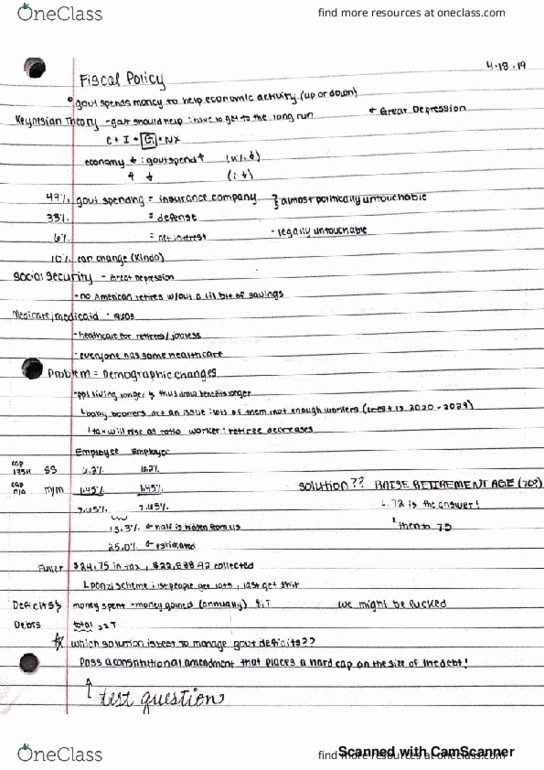 OneClass
find more resources at oneclass.com
4.18.19
Fiscal Policy
• govt spends money to help economic activity (up or down)
Keynesian Theory - govt should help : have to get to the long run * Great Depression
C + I + G + NX
economy ↓ : govt spend ↑ (u% ↓)
↑ ↓ (i ↓)
49% govt spending = insurance company } almost politically untouchable
35% = defense
6% = net interest - legally untouchable
10% can change (kinda)
Social Security - Great Depression
- no American retires w/out a lil bit of savings
Medicare/medicaid
- healthcare for retirees/
- everyone has some healthcare
Problem = Demographic changes
- ppl living longer & thus draw benefits longer
baby boomers are an issue : lots of them not enough workers (crest is 2020-2029)
tax will rise as ratio worker : retiree decreases
Employee Employer
cap SS 6.2% 6.2% solution?? RAISE RETIREMENT AGE (70?)
cap n/a m/m 1.45% 1.45% 72 is the answer!
7.65% 7.65% then to 75
15.3% ← half is hidden from us
25.0% ← estimated
$24.75 in tax, collected
ponzi scheme : 1st people get lots, last get shit
Deficits money spent - money gained (annually) $1T we might be fucked
Debts total 22T
which solution is best to manage govt deficits??
Pass a constitutional amendment that places a hard cap on the size of the debt!
↑ test question
OneClass
find more resources at oneclass.com
Scanned with CamScanner